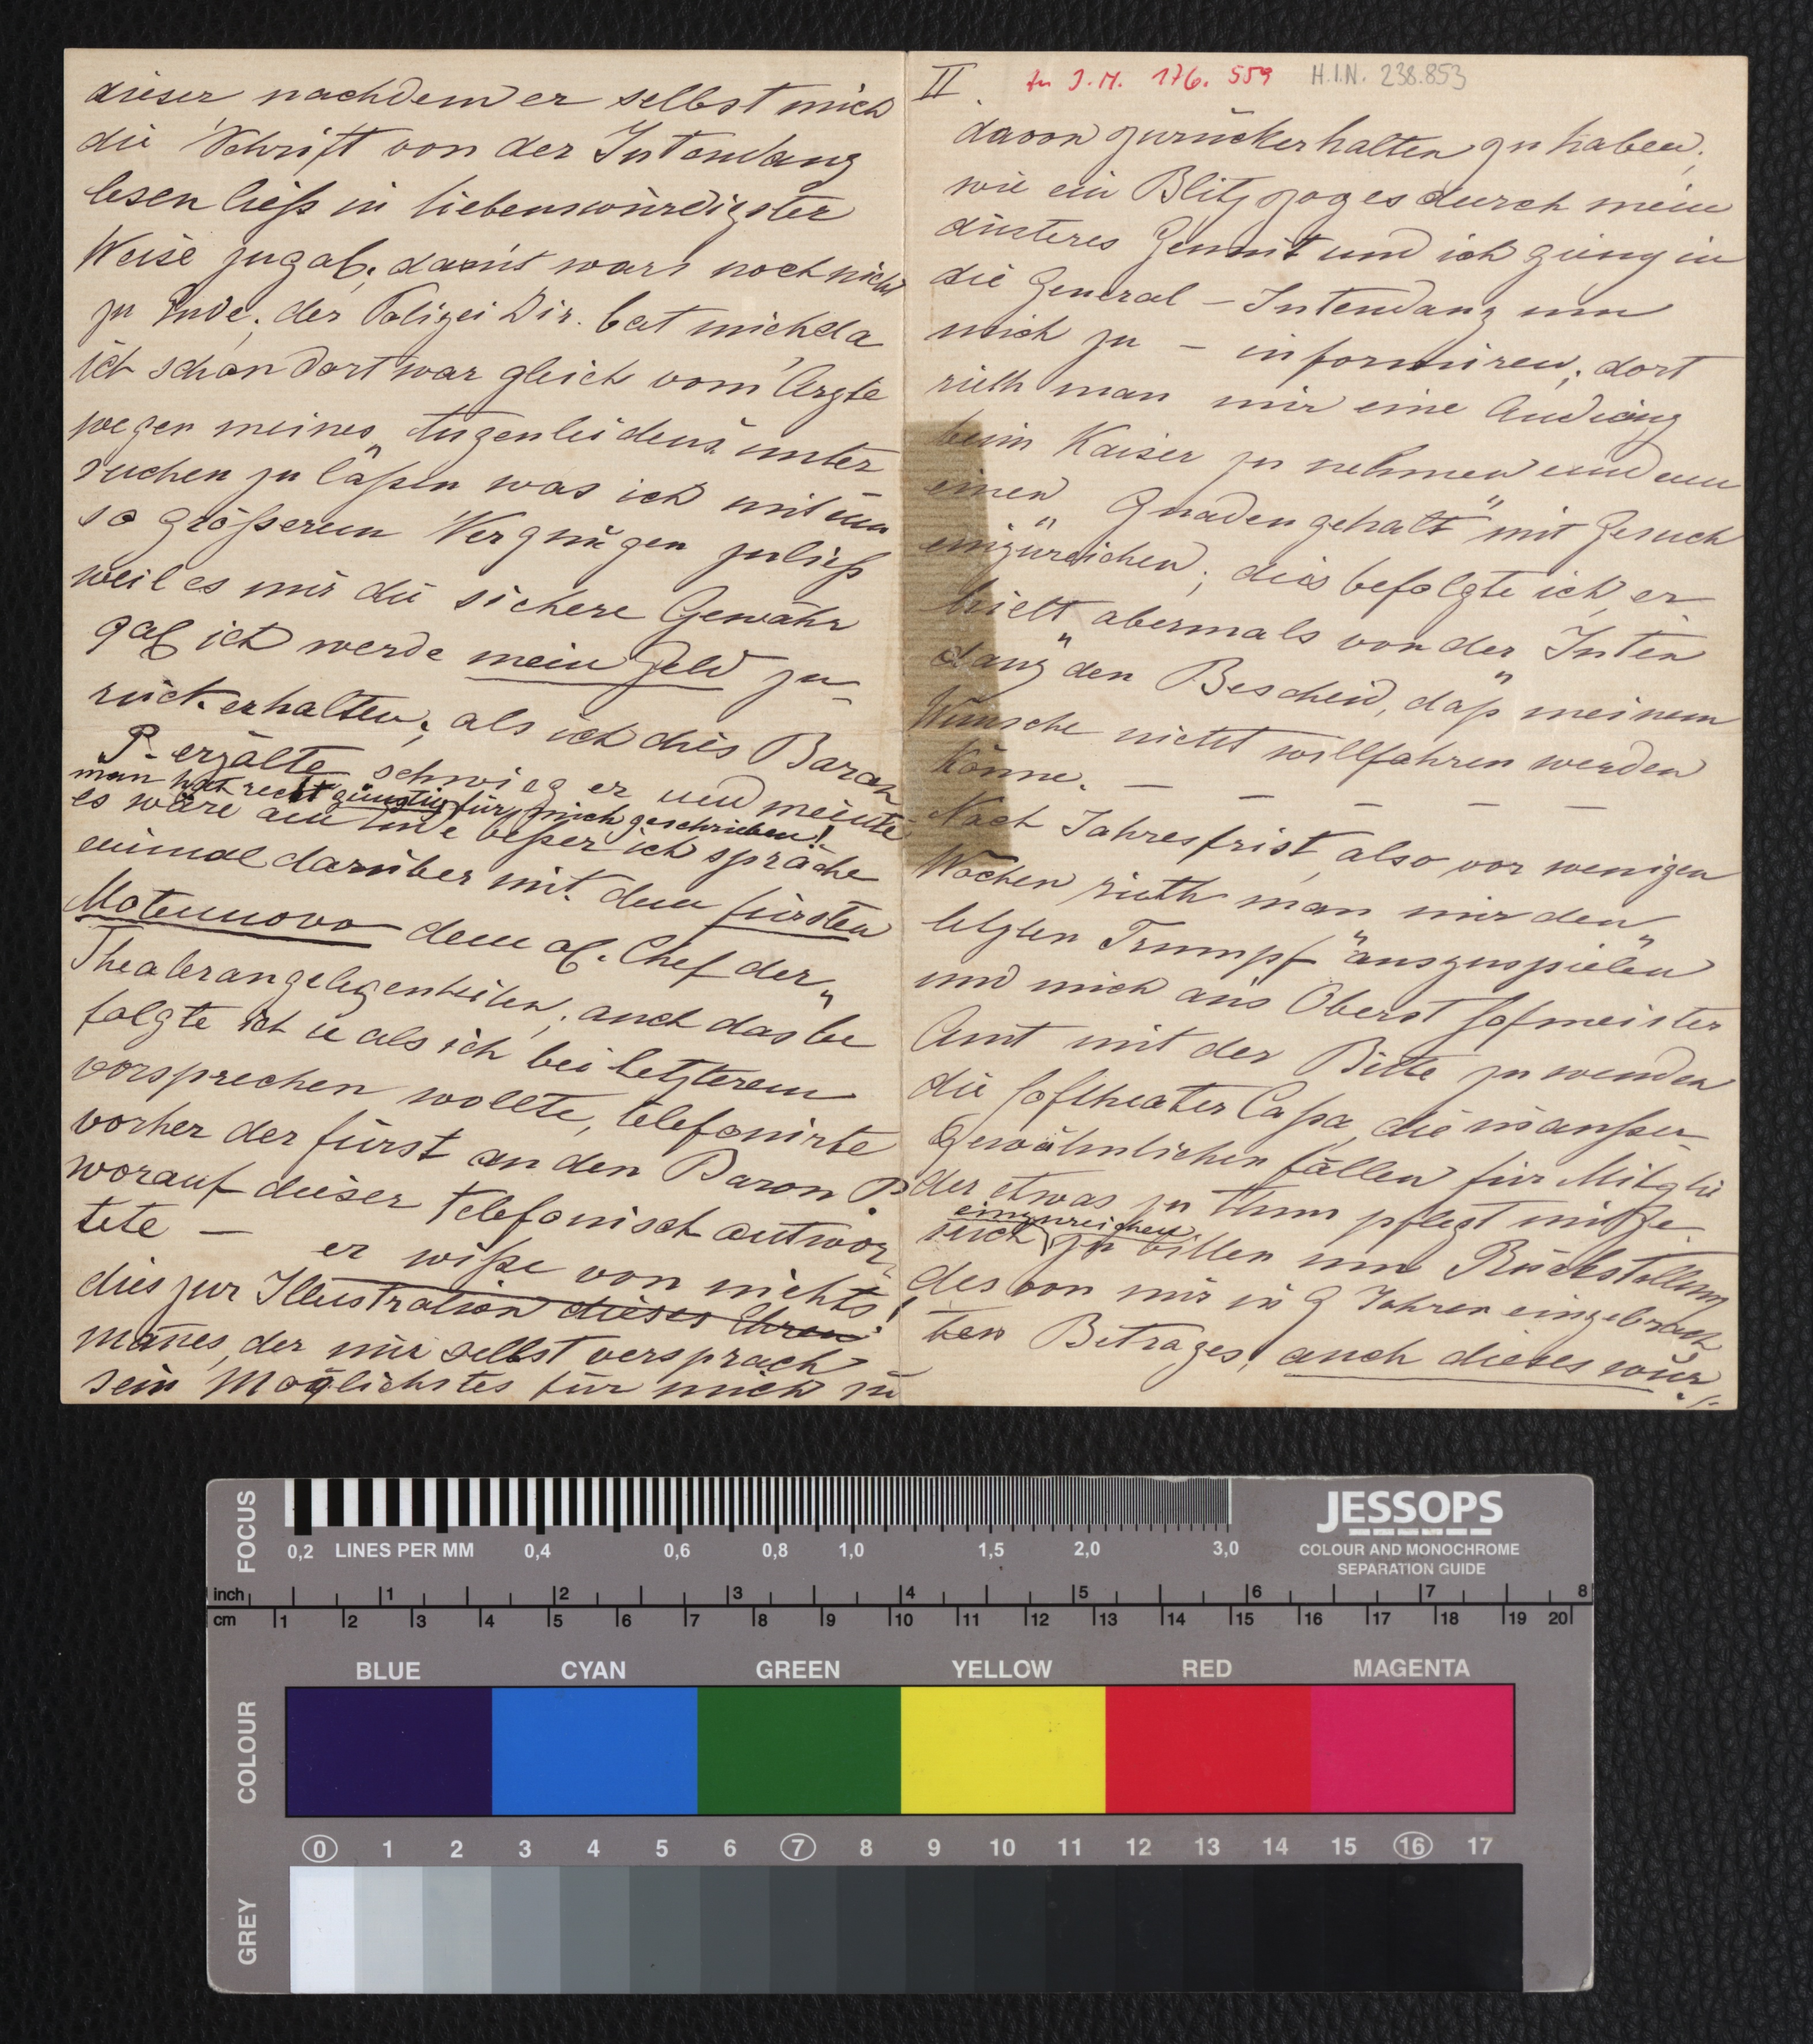 dieser nachdem er selbst mich
die Schrift von der Intendanz
lesen ließ in liebenswürdigster
Weise zugab; damit wars noch nicht
zu Ende; der Polizei Dir. bat mich da
ich schon dort war gleich vom Arzte
wegen meines „Augenleidens" unter
suchen zu laßen was ich mit um
so größerem Vergnügen zuließ
weil es mir die sichere Gewähr
gab ich werde mein Geld zu-
rückerhalten; als ich dies Baron
P. erzälte schwieg er und meinte
man hat recht günstig für mich geschrieben!
es wäre am Ende beßer ich spräche
einmal darüber mit dem Fürsten
Motenuovo dem ob. Chef der
Theaterangelegenheiten; auch das be„
folgte ich u als ich bei letzterem
vorsprechen wollte, telefonirte
vorher der Fürst an den Baron P.
worauf dieser telefonisch antwor„
tete — er wiße von nichts!
dies zur Illustration dieses Ehren„
mañes, der mir selbst versprach
sein Möglichstes für mich zu
II in J.N. 176.559 H.I.N. 238.853
davon zurückerhalten zu haben;
wie ein Blitz zog es durch mein
düsteres Gemüt und ich gieng in
die General-Intendanz um
mich zu – informiren; dort
rieth man mir eine Audienz
beim Kaiser zu nehmen und um
einen „Gnadengehalt" mit Gesuch
einzureichen; dies befolgte ich, er„
hielt abermals von der Inten„
danz den Bescheid, daß meinem
Wunsche nicht willfahren werden
könne. — — — — —
Nach Jahresfrist, also vor wenigen
Wochen rieth man mir den
letzten Trumpf "auszuspielen"
und mich ans Oberst Hofmeister
Amt mit der Bitte zu wenden
die Hoftheater Caßa, die in außer-
gewöhnlichen Fällen für Mitglie
der etwas zu thun pflegt mit Ge-
einzureichen
such zu bitten um Rückstellung
des von mir in 9 Jahren eingebrach
ten Betrages; auch dieses wur-
FOCUS
0,2 LINES PER MM 0,4 0,6 0,8 1,0 1,5 2,0 3,0
JESSOPS
COLOUR AND MONOCHROME
SEPARATION GUIDE
inch 1 2 3 4 5 6 7 8
cm 1 2 3 4 5 6 7 8 9 10 11 12 13 14 15 16 17 18 19 20
BLUE CYAN GREEN YELLOW RED MAGENTA
COLOUR
0 1 2 3 4 5 6 7 8 9 10 11 12 13 14 15 16 17
GREY